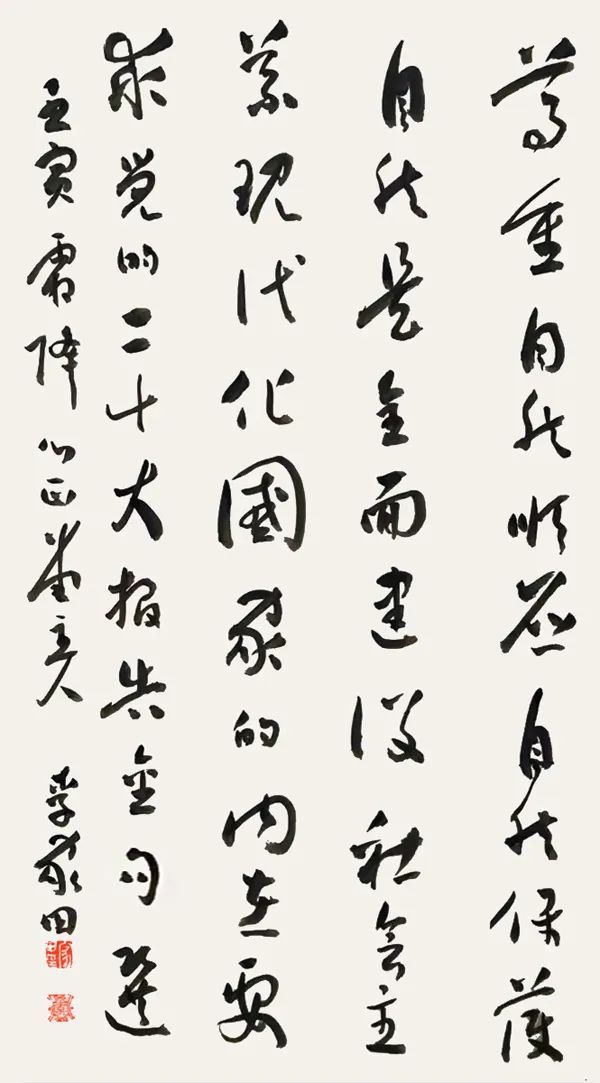 尊重自然顺应自然保護
自然是全面建设社会主
義现代化國家的内在要
求党的二十大报告金句选
壬寅霜降 李家田